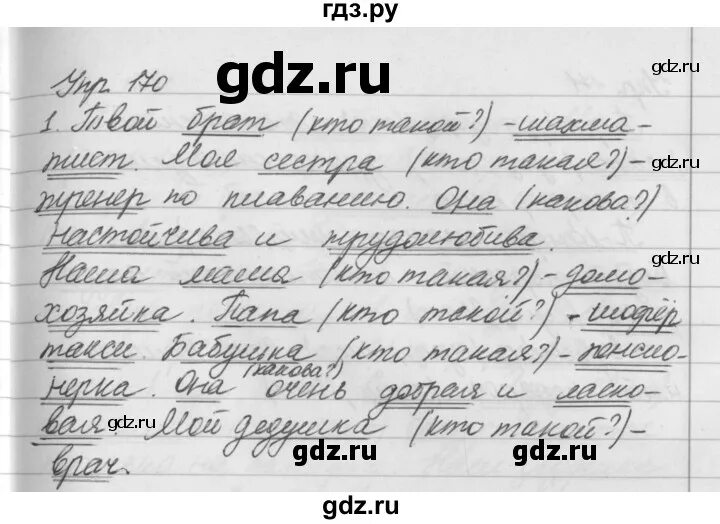 гдз.ру
gdz.ru
Упр. 170
1. Твой брат (кто такой?) – шахма-
gdz.ru
тист. Моя сестра (кто такая?) –
gdz.ru
тренер по плаванию. Она (какова?)
настойчива и трудолюбива.
Наша мама (кто такая?) – домо-
хозяйка. Папа (кто такой?) – шофёр
такси. Бабушка (кто такая?) – пенсио-
(какова?)
нерка. Она очень добрая и ласко-
gdz.ru
вая. Мой дедушка (кто такой?) –
gdz.ru
gdz.ru
врач.
gdz.ru